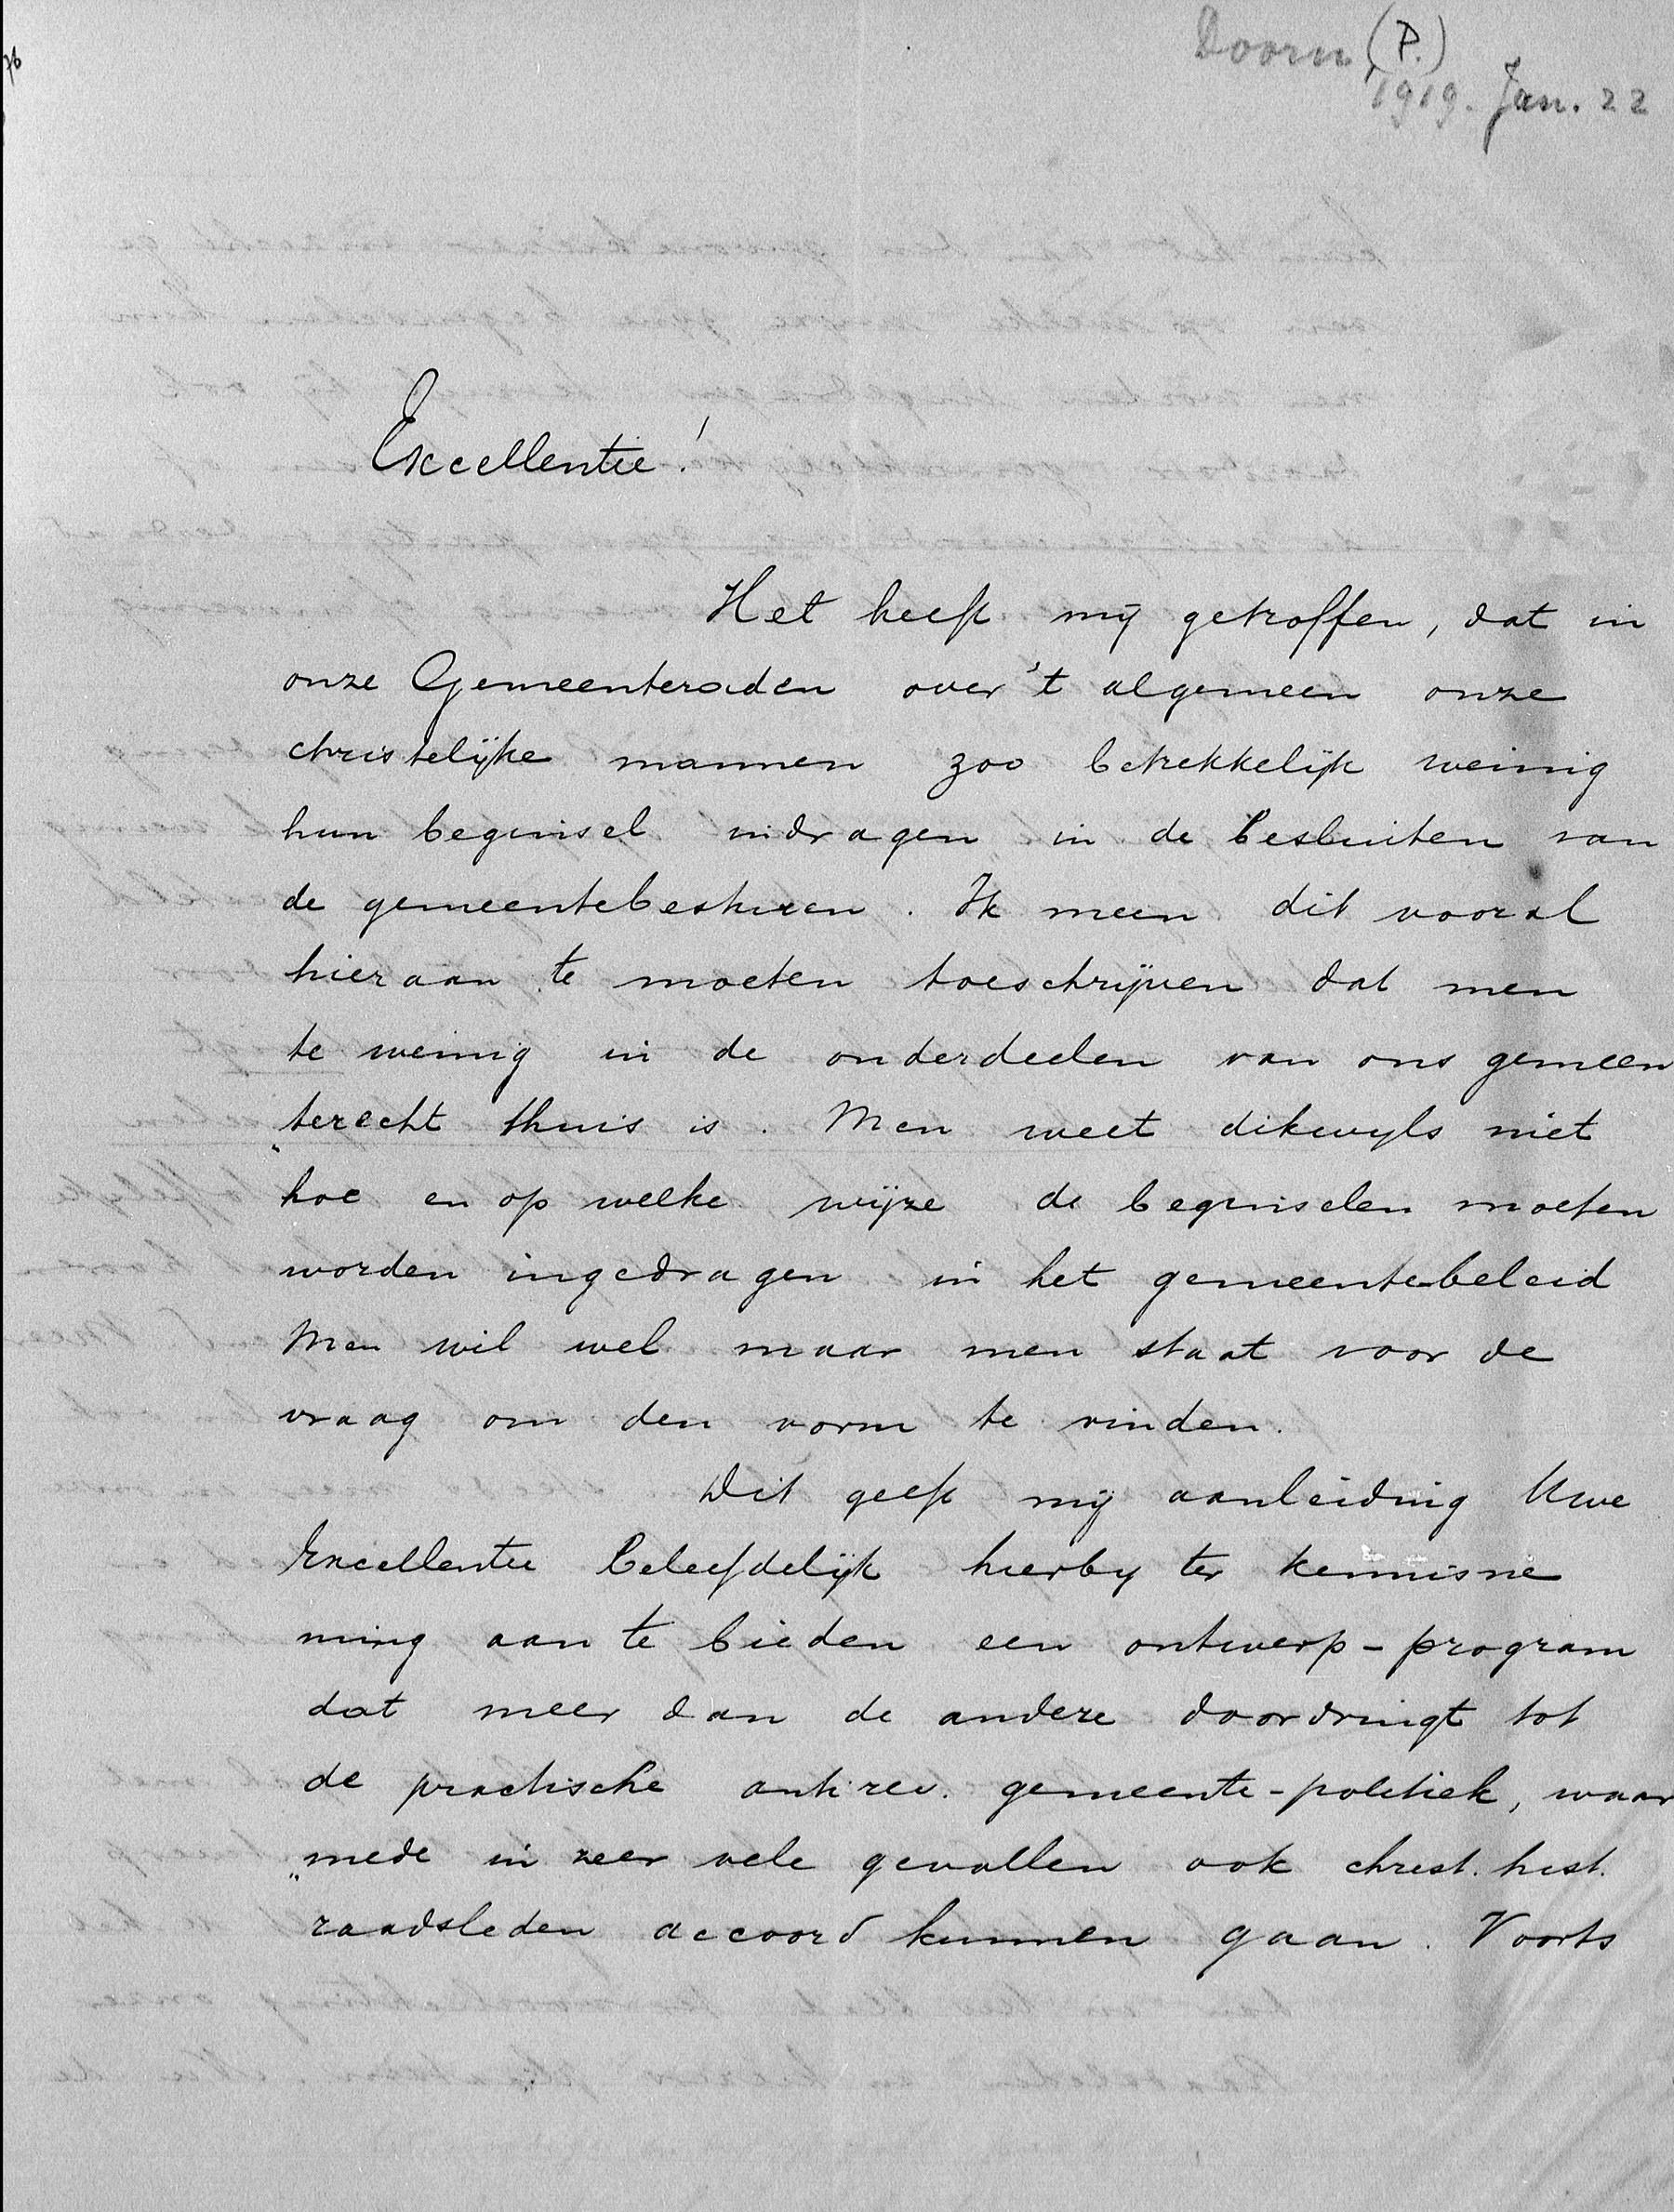 Doorn (P.)
1919. Jan. 22
Excellentie!
Het heeft mij getroffen, dat in
onze Gemeenteraden over 't algemeen onze
christelijke mannen zoo betrekkelijk weinig
hun beginsel indragen in de besluiten van
de gemeentebesturen. Ik meen dit vooral
hieraan te moeten toeschrijven dat men
te weinig in de onderdeelen van ons gemeen
„terecht thuis is. Men weet dikwyls niet
hoe en op welke wijze de beginselen moeten
worden ingedragen in het gemeentebeleid
Men wil wel maar men staat voor de
vraag om den vorm te vinden.
Dit geeft mij aanleiding Uwe
Excellentie beleefdelijk hierby ter kennisne
ming aan te bieden een ontwerp-program
dat meer dan de andere doordringt tot
de practische antirev. gemeente-politiek, waar
„mede in zeer vele gevallen ook christ. hist.
raadsleden accoord kunnen gaan. Voorts